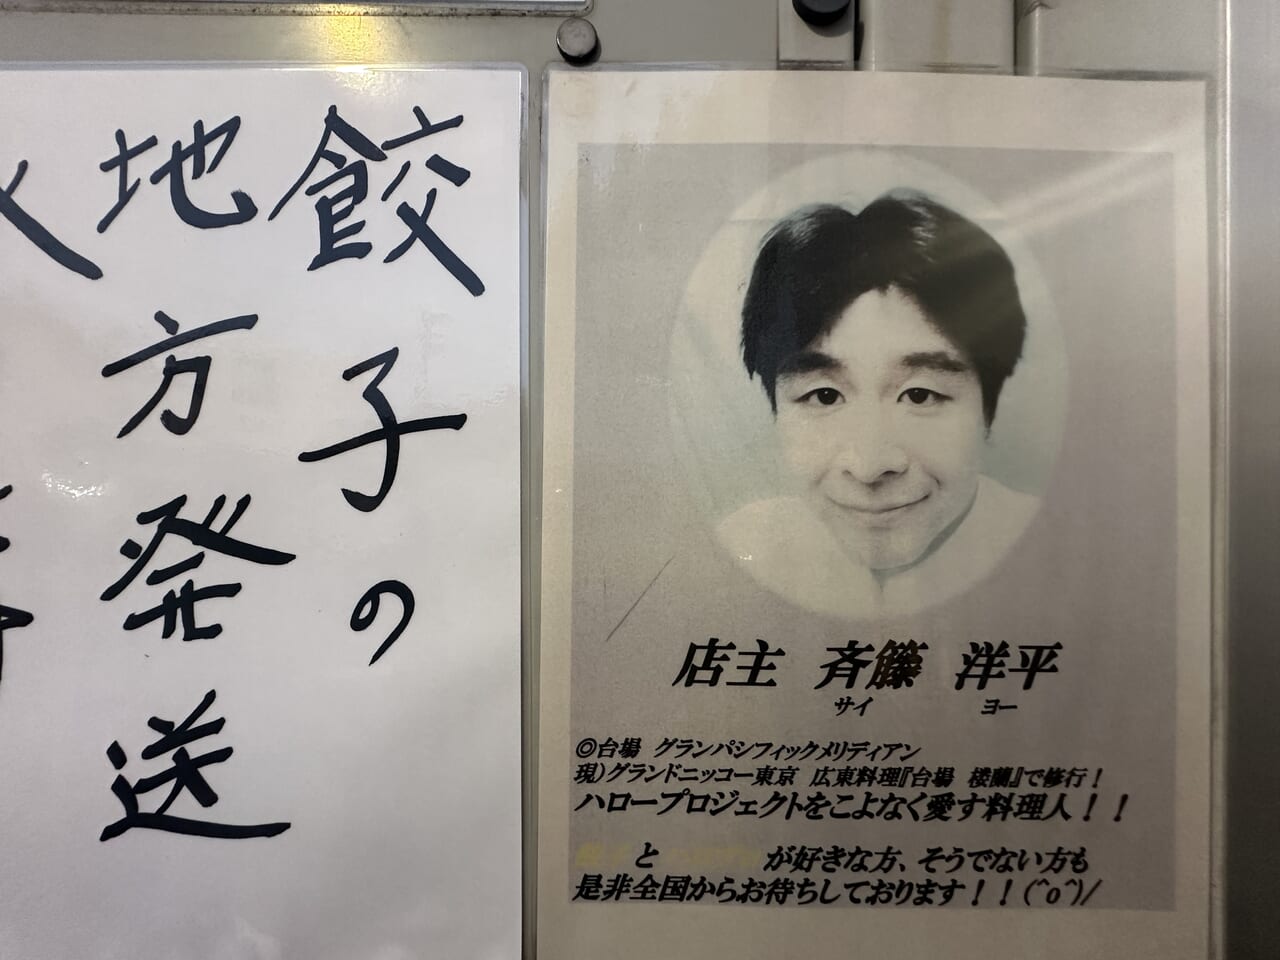 餃子の
地方発送
店主 斉籐 洋平
サイ ヨー
◎台場 グランパシフィックメリディアン
現)グランドニッコー東京 広東料理『台場 楼蘭』で修行！
ハロープロジェクトをこよなく愛す料理人！！
と が好きな方、そうでない方も
是非全国からお待ちしております！！(^o^)/